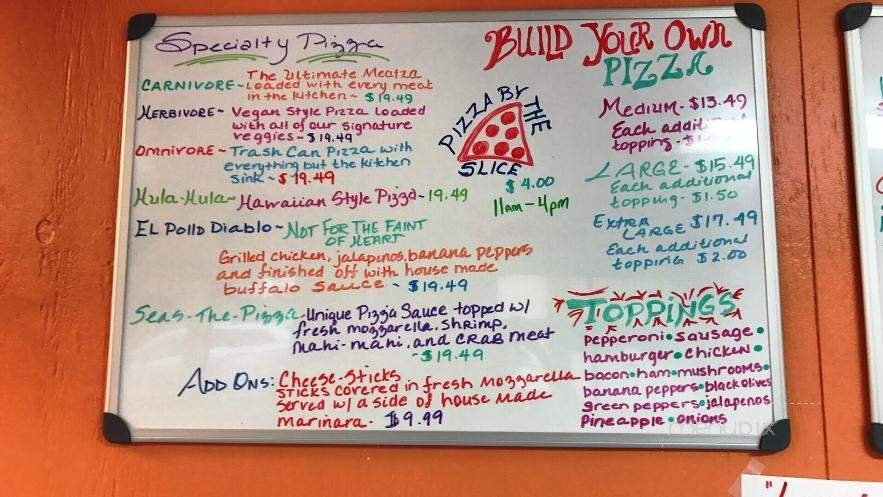 Specialty Pizza
CARNIVORE ~ The Ultimate Meatza
loaded with every meat
in the kitchen ~ $19.49
HERBIVORE ~ Vegan Style Pizza loaded
with all of our signature
veggies ~ $19.49
OMNIVORE ~ Trash Can Pizza with
everything but the kitchen
sink ~ $19.49
Hula-Hula ~ Hawaiian Style Pizza - 19.49
EL Pollo Diablo ~ NOT FOR THE FAINT
OF HEART
Grilled chicken, jalapenos, banana peppers
and finished off with house made
buffalo sauce ~ $19.49
Seas-The-Pizza - Unique Pizza Sauce topped w/
fresh mozzarella, shrimp,
mahi-mahi, and CRAB meat
- $19.49
ADD ONS: Cheese-Sticks
STICKS COVERED in fresh Mozzarella
Served w/ a side of house made
marinara - $9.99
PIZZA BY THE
SLICE
$4.00
11am - 4pm
BUILD YOUR OWN
PIZZA
MEDIUM - $13.49
Each additional
topping - $1
LARGE - $15.49
Each additional
topping - $1.50
EXTRA
LARGE $17.49
Each additional
topping $2.00
TOPPINGS
pepperoni • sausage •
hamburger • chicken •
bacon • ham • mushrooms •
banana peppers • black olives
green peppers • jalapenos
Pineapple • onions
menupix